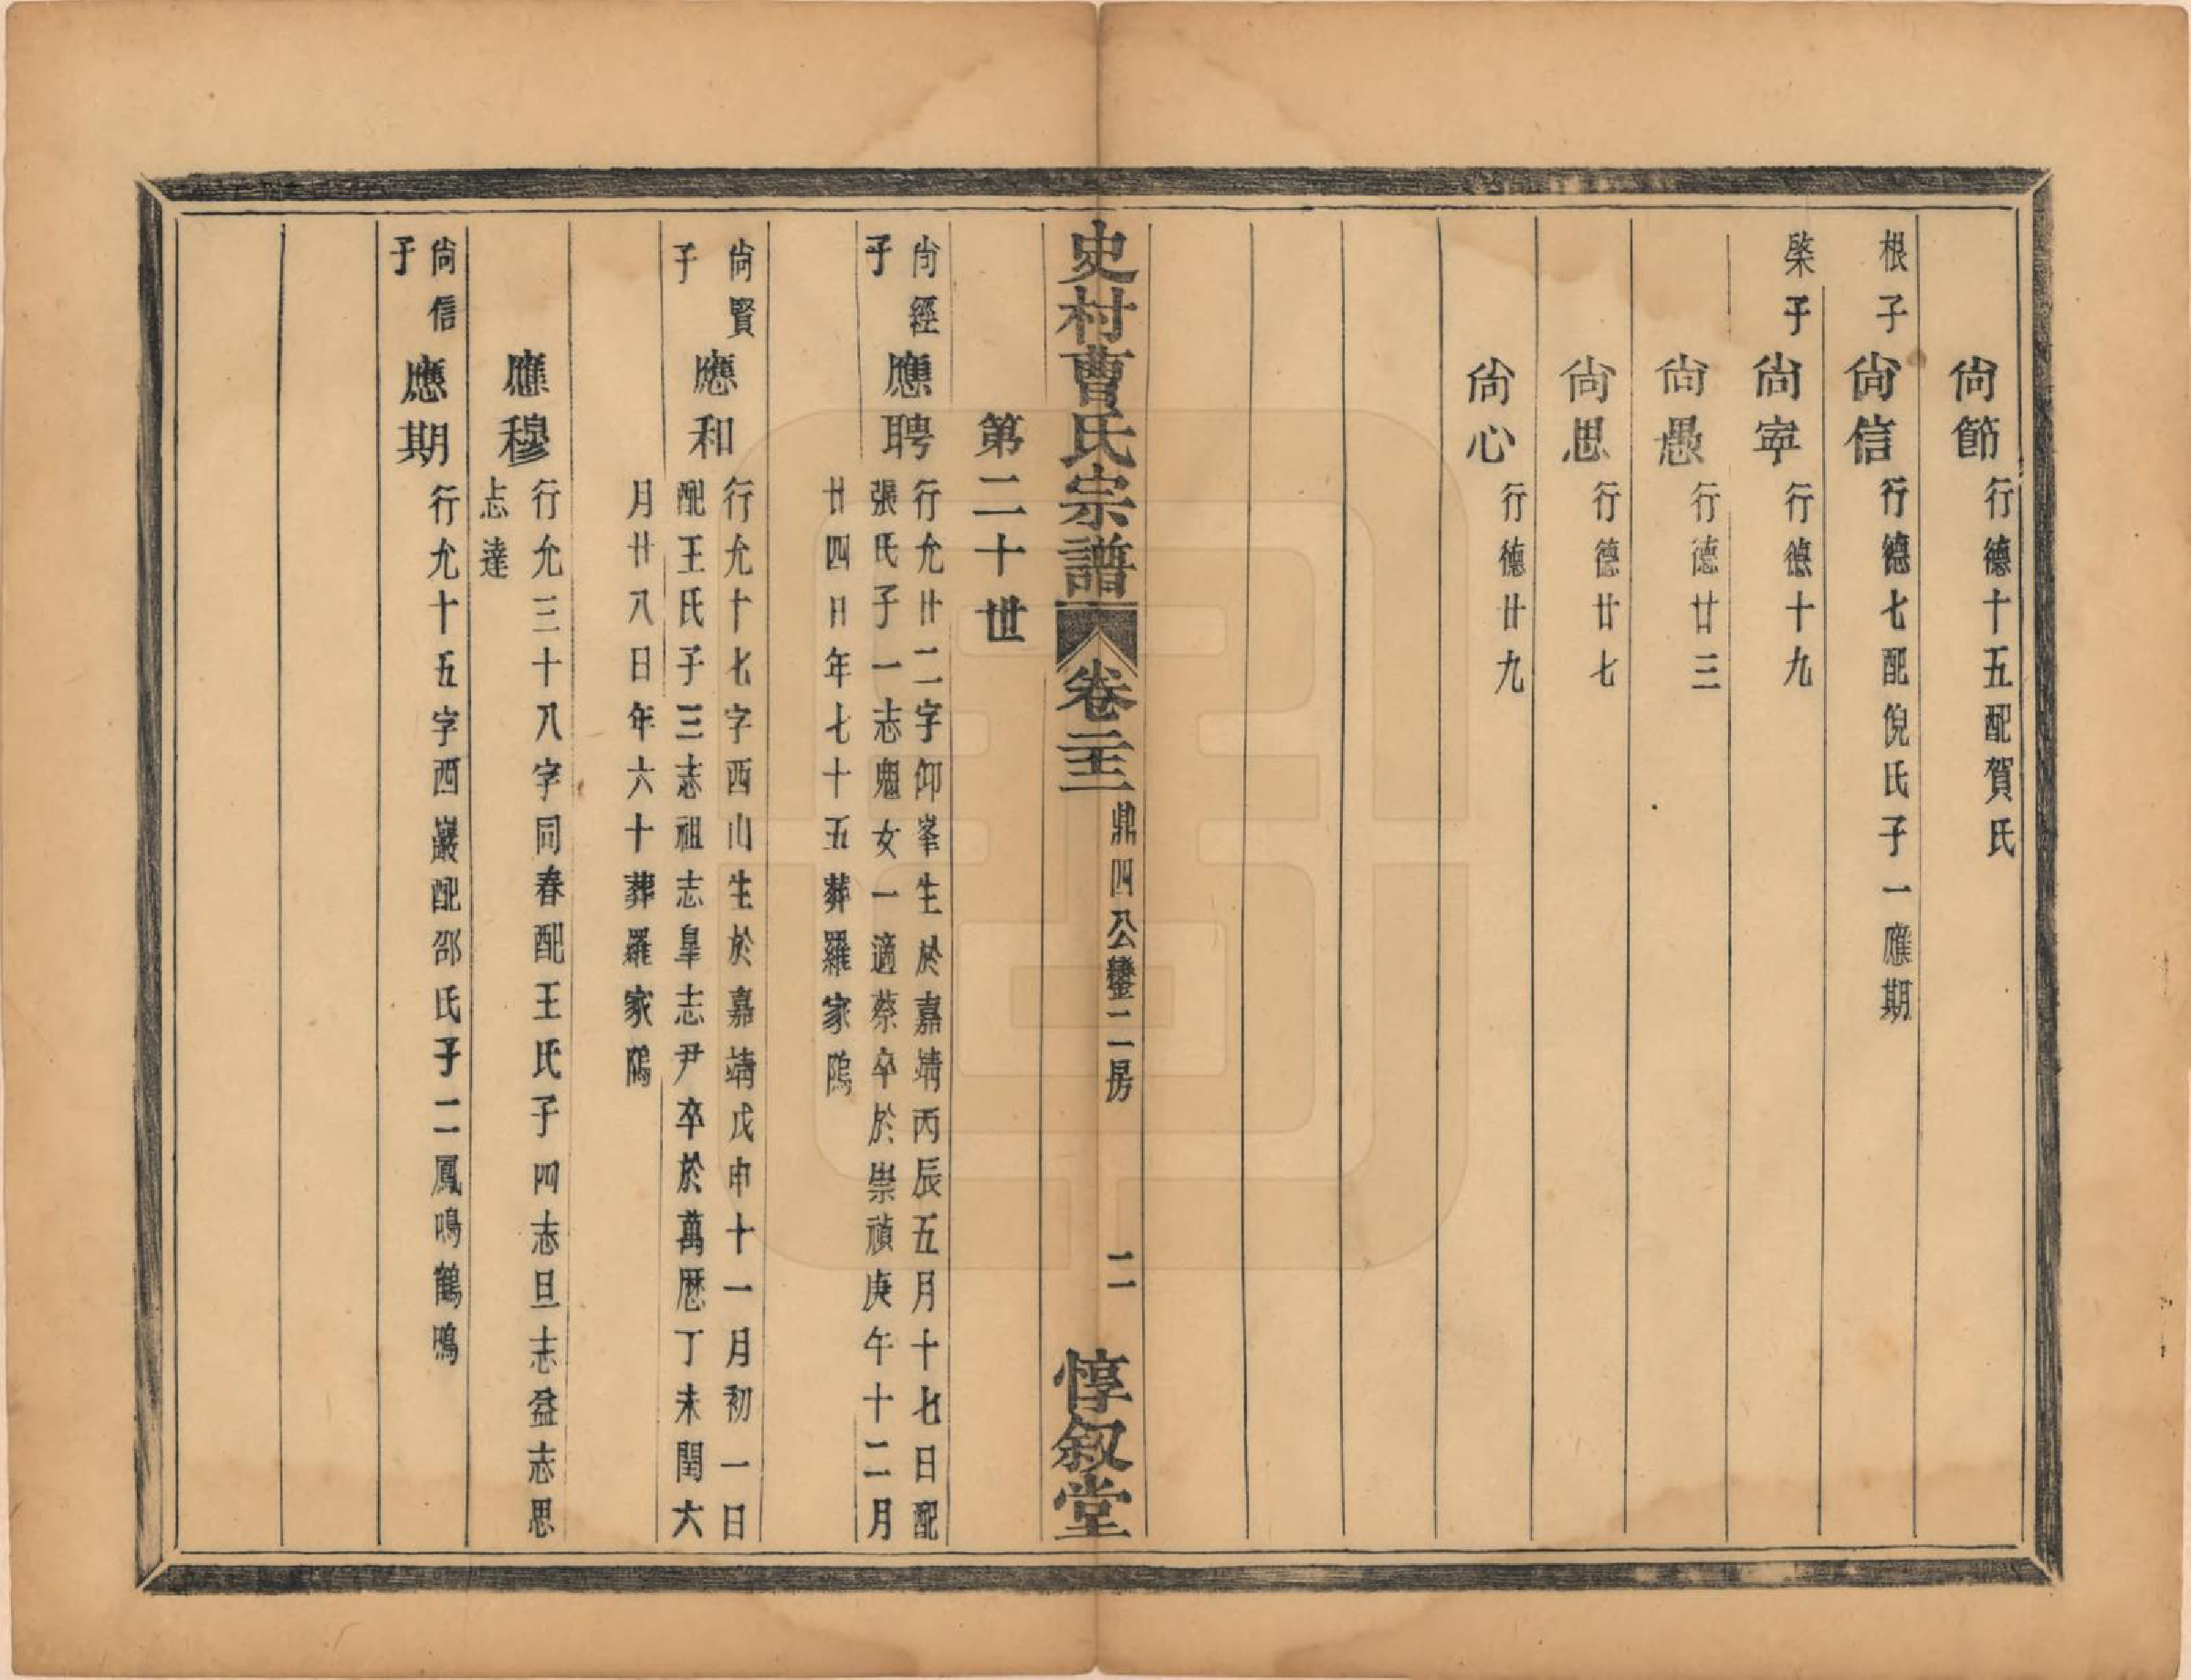 尙節行德十五配賀氏
根子尙信行德七配倪氏子一應期
棨子尙寧行德十九
尙愚行德廿三
尙思行德廿七
尙心行德廿九
史村曹氏宗譜 卷二十三 鼎四公鑾二房 二 惇叙堂
第二十世
尙經子應聘行允廿二字仰峯生於嘉靖丙辰五月十七日配
張氏子一志魁女一適蔡卒於崇禎庚午十二月
廿四日年七十五葬羅家隖
尙賢子應和行允十七字西山生於嘉靖戊申十一月初一日
配王氏子三志祖志皐志尹卒於萬厯丁未閏六
月廿八日年六十葬羅家隖
應穆行允三十八字同春配王氏子四志旦志益志思
志達
尙信子應期行允十五字西巖配邵氏子二鳳鳴鶴鳴